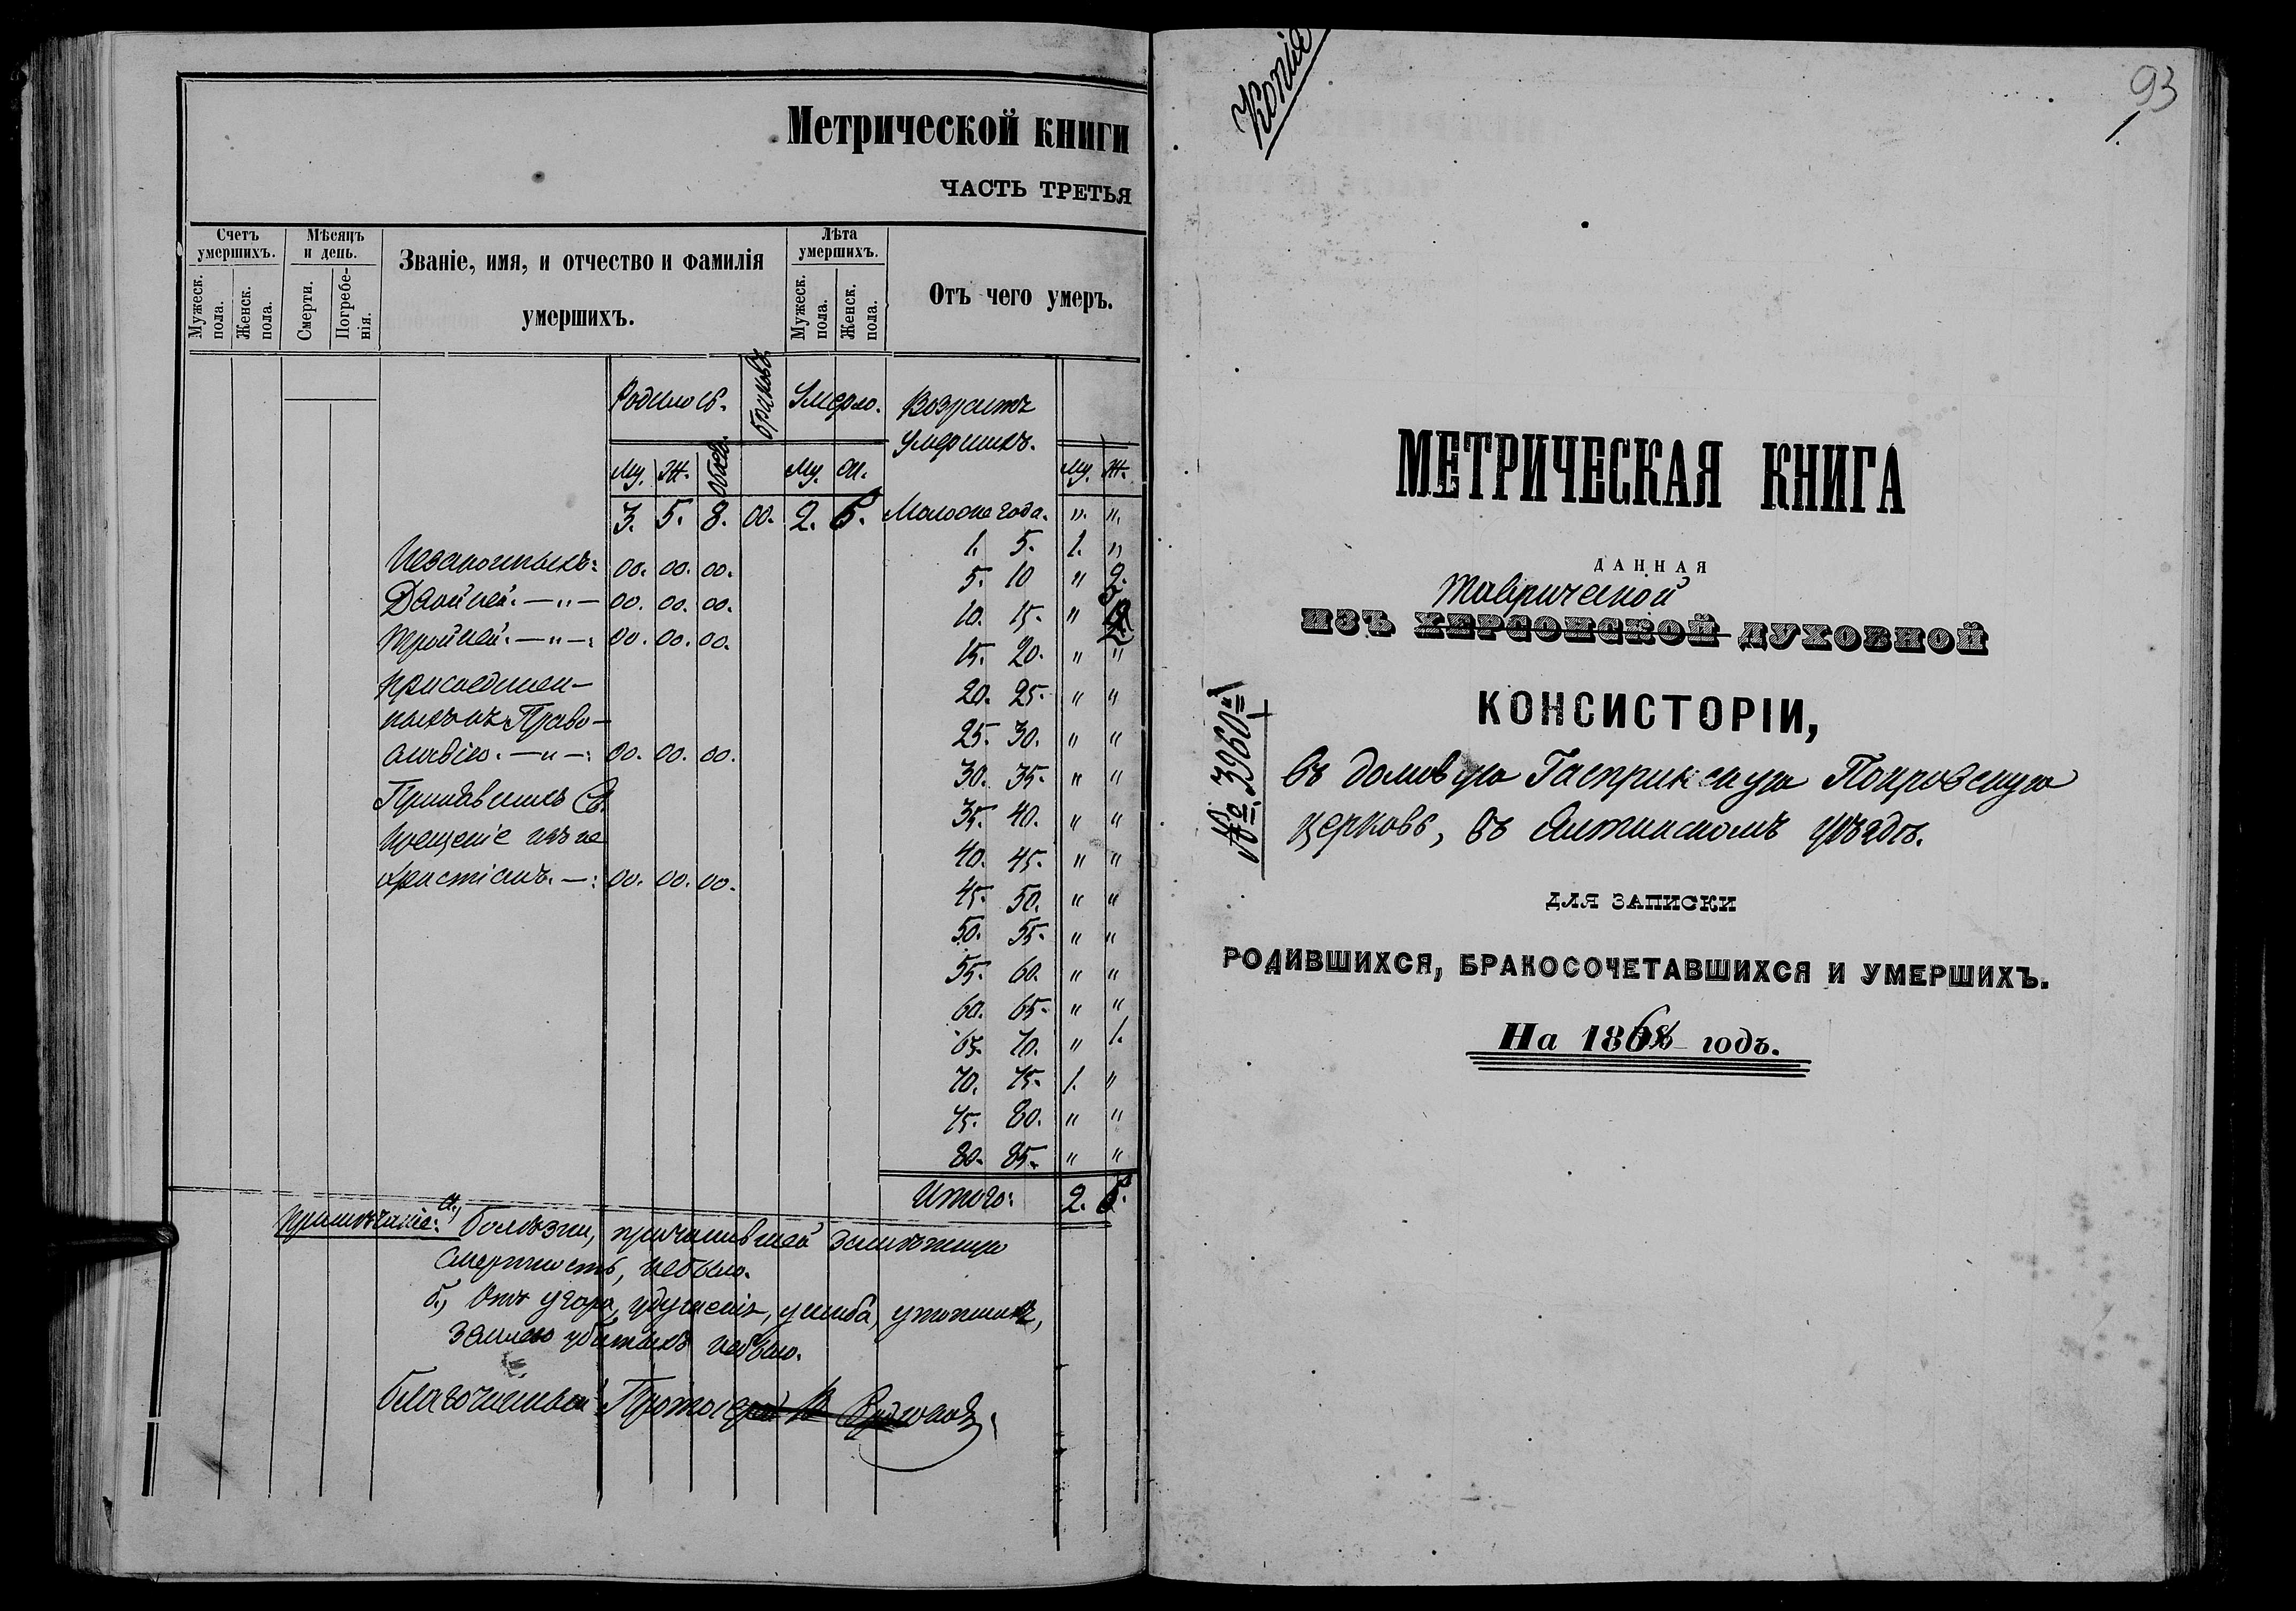 Метрической книги
ЧАСТЬ ТРЕТЬЯ
Счетъ умершихъ.
Мужеск. пола.
Женск. пола.
Мѣсяцъ и день.
Смерти.
Погребе-нія.
Званіе, имя, и отчество и фамилія
умершихъ.
Лѣта умершихъ.
Мужеск. пола.
Женск. пола.
Отъ чего умеръ.
Родилось. браковъ. Умерло. Возрастъ
умершихъ.
му. ж. обоего. му. ж. му. ж.
3. 5. 8. 00. 2. 5. Моложе года. „. „.
1. 5. 1. „
Незаконныхъ: 00. 00. 00.
5. 10 „ 2.
Двойней. — „ — 00. 00. 00.
10. 15. „ 2
Тройней. — „ —: 00. 00. 00.
15. 20. „ „
Присоединен-
20. 25. „ „
ныхъ къ Право-
25. 30. „ „
славію. — „ —: 00. 00. 00.
30. 35. „ „
Принявшихъ Св.
35. 40. „ „
Крещеніе изъ не
40. 45. „ „
христіанъ. —: 00. 00. 00.
45. 50. „ „
50. 55. „ „
55. 60. „ „
60. 65. „ „
65. 70. „ 1.
70. 75. 1. „
75. 80. „ „
80. 85. „ „
Итого: 2. 5.
Примѣчаніе: а., Болѣзни, причинившей замѣтную
смертность, небыло.
б., Отъ угара, удушенія, ушиба, утопшихъ,
убитыхъ небыло.
Благочинный Протоіерей
Копія
93
1.
МЕТРИЧЕСКАЯ КНИГА
ДАННАЯ
Таврической
ИЗЪ ХЕРСОНСКОЙ ДУХОВНОЙ
КОНСИСТОРІИ,
№ 3960
въ домовую Гаспринскую Покровскую
церковь, въ Ялтинскомъ уѣздѣ.
ДЛЯ ЗАПИСКИ
РОДИВШИХСЯ, БРАКОСОЧЕТАВШИХСЯ И УМЕРШИХЪ.
На 1868 годъ.